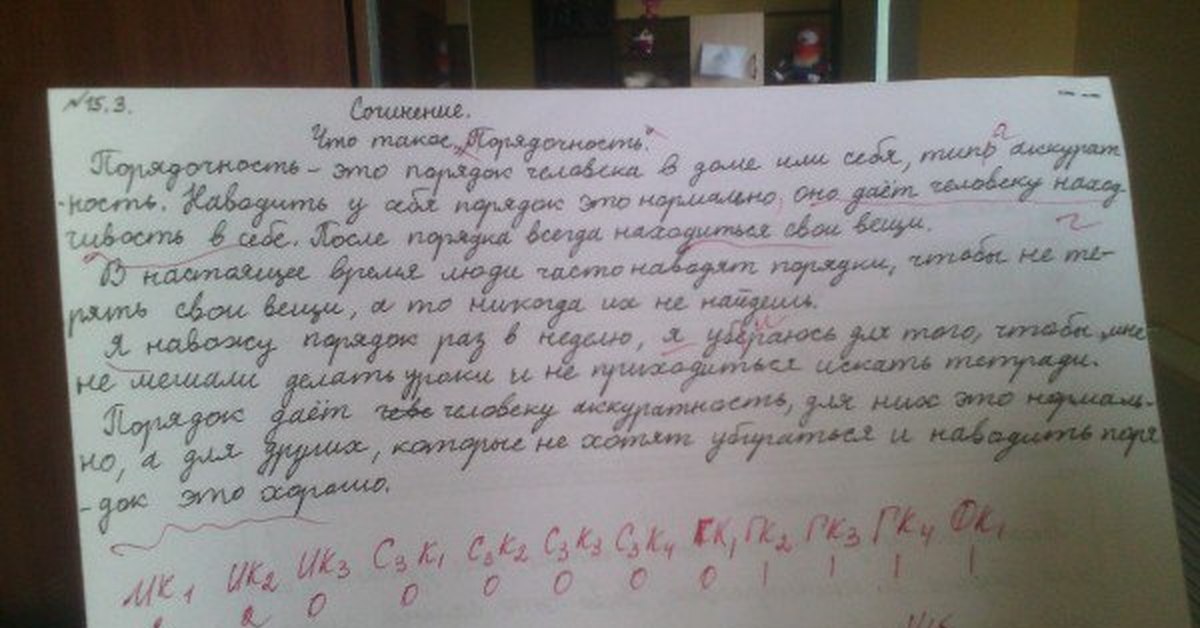 №15.3.
Сочинение.
Что такое „Порядочность".
Порядочность – это порядок человека в доме или себя, типо аккурат
-ность. Наводить у себя порядок это нормально, оно даёт человеку наход-
чивость в себе. После порядка всегда находиться свои вещи.
В настаящее время люди часто наводят порядки, чтобы не те-
рять свои вещи, а то никогда их не найдешь.
Я навожу порядок раз в неделю, я убераюсь для того, чтобы мне
не мешали делать уроки и не приходиться искать тетради.
Порядок даёт человеку аккуратность, для них это нормаль-
но, а для других, которые не хотят убираться и наводить поря
-док это хорошо.
ИК1 ИК2 ИК3 С3К1 С3К2 С3К3 С3К4 ГК1 ГК2 ГК3 ГК4 ФК1
2 0 0 0 0 0 0 1 1 1 1